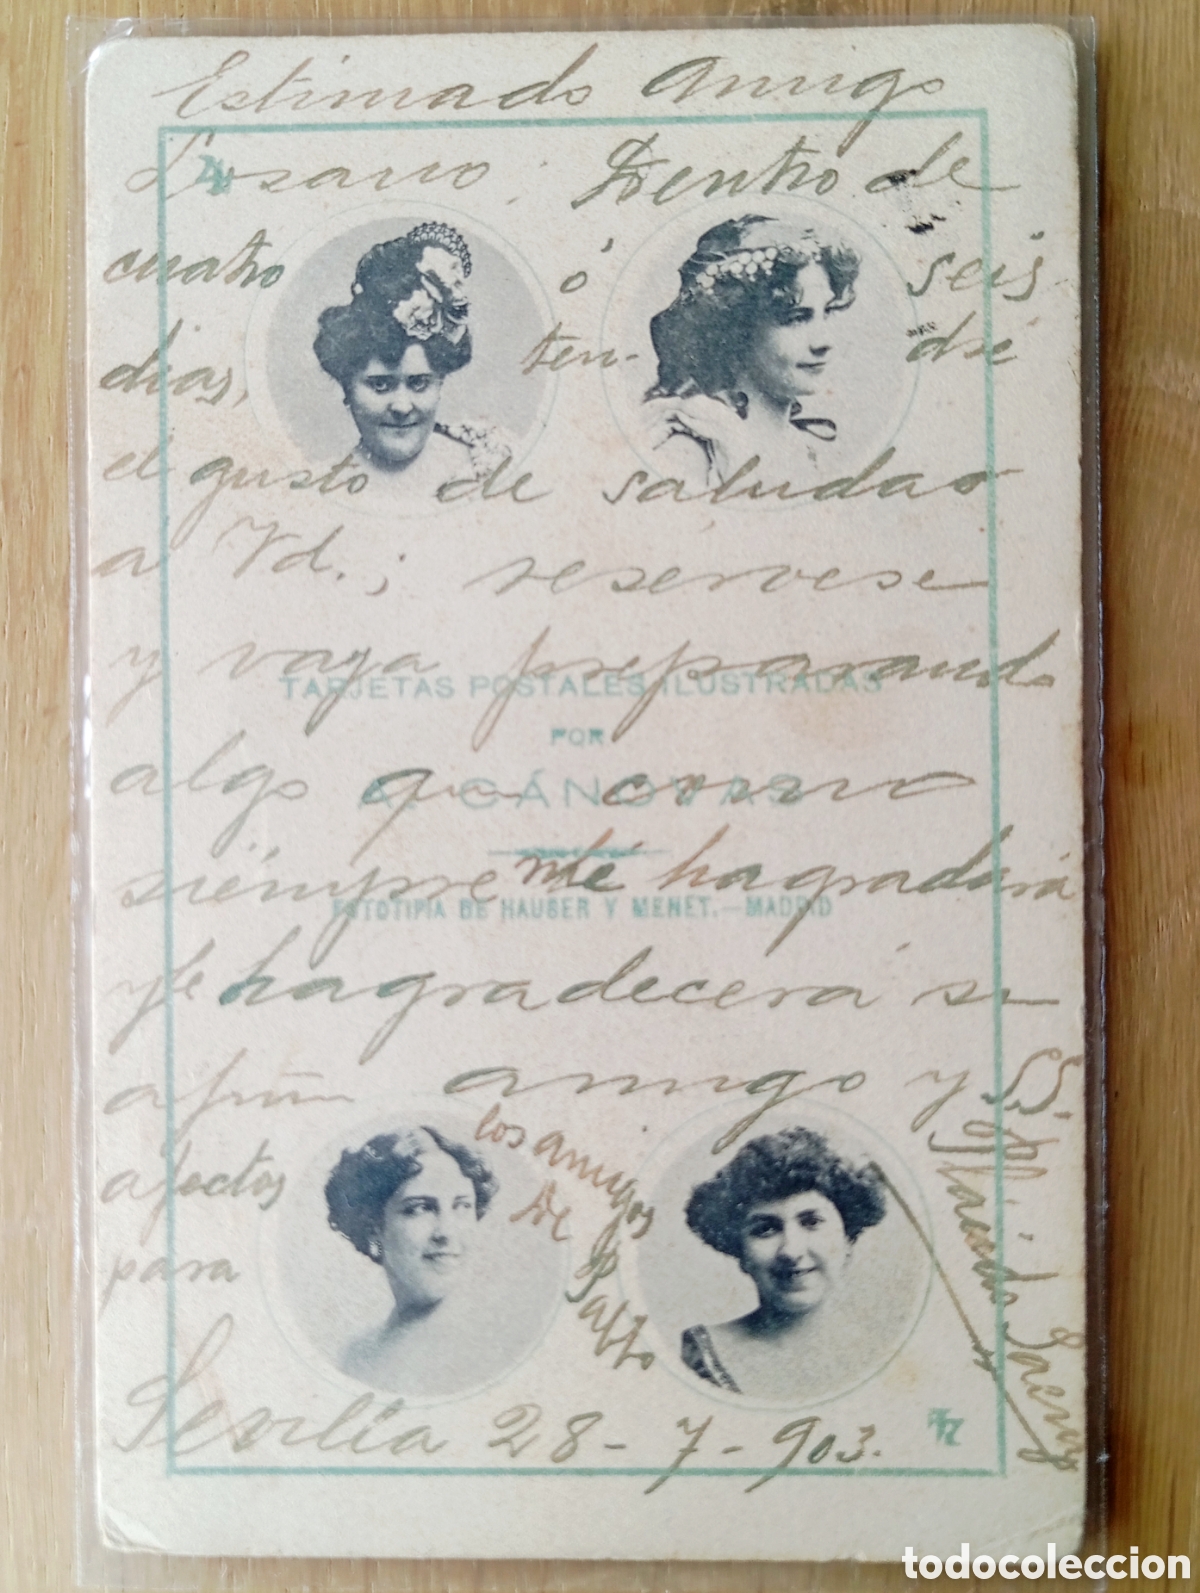 Estimado Amigo
Losano: Dentro de
cuatro ó seis
dias, ten- dré
el gusto de saludar
a Vd.; reservese
y vaya preparando
TARJETAS POSTALES ILUSTRADAS
POR
algo que como
A. CÁNOVAS
siempre me hagradará
FOTOTIPIA DE HAUSER Y MENET.-MADRID
y le hagradecerá su
afmo amigo y S.S.
afectos
para
los amigos
De
Sevilla 28-7-903.
todocoleccion